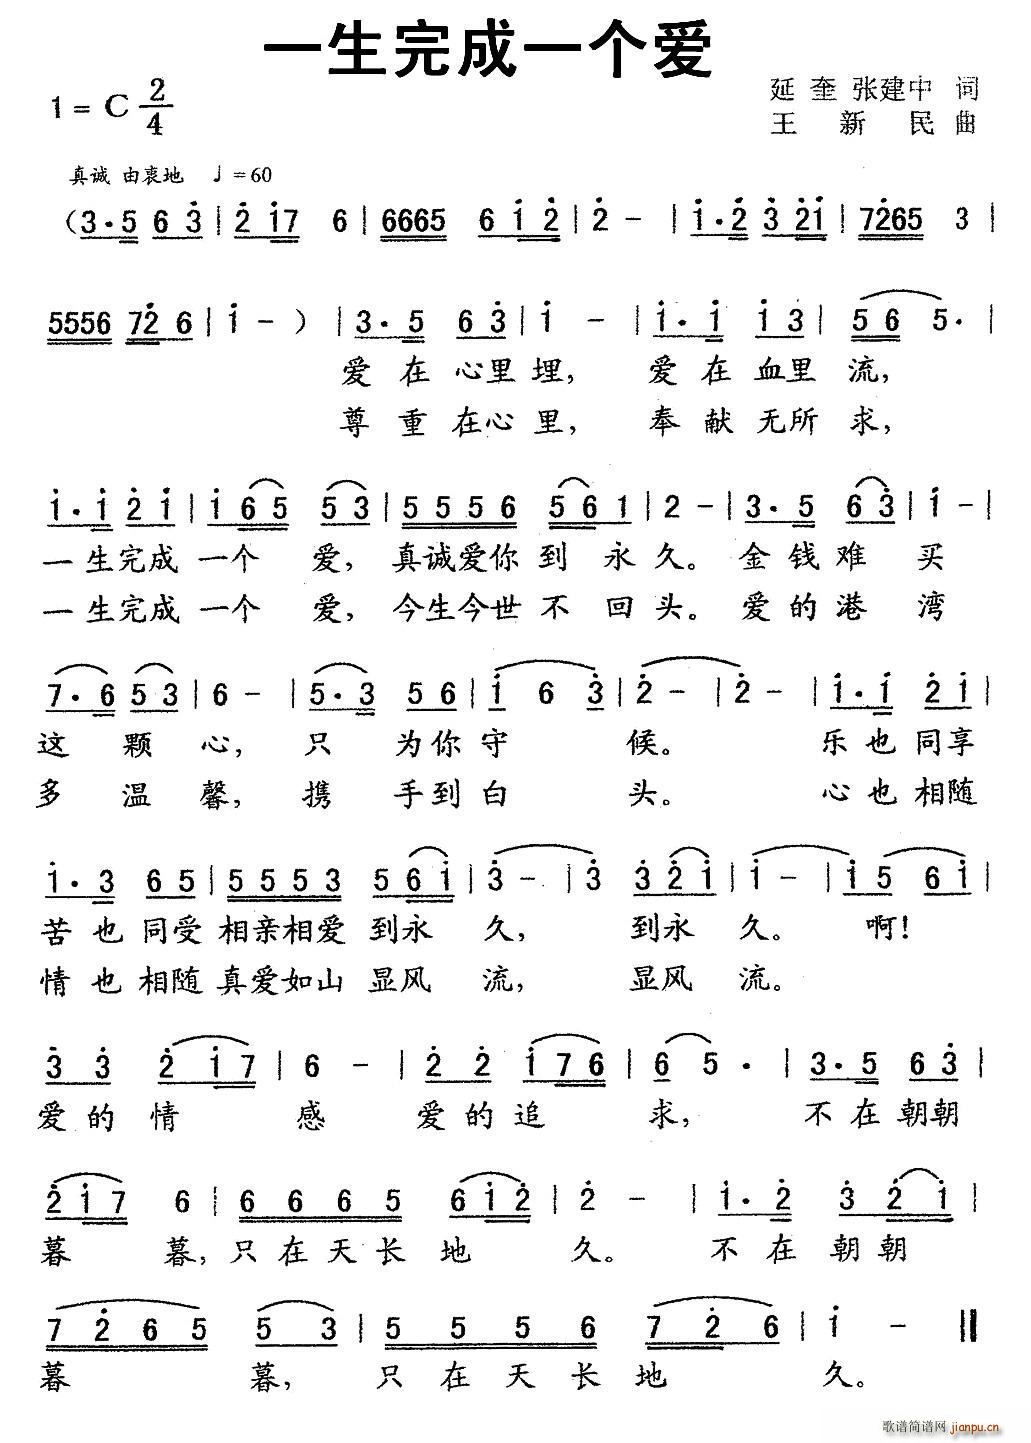 一生完成一个爱
1 = C 2/4
延 奎 张建中 词
王 新 民 曲
真诚 由衷地 ♩=60
(3·5 6 3̇ | 2̇ 1̇7 6 | 6665 6 1̇ 2̇ | 2̇ - | 1̇·2̇ 3̇ 2̇1̇ | 72̇65 3 |
5556 72̇ 6 | 1̇ - ) | 3·5 6 3̇ | 1̇ - | 1̇·1̇ 1̇ 3 | 5 6 5· |
爱 在 心里 埋, 爱 在 血里 流,
尊 重 在心 里, 奉 献 无所 求,
1̇·1̇ 2̇ 1̇ | 1̇ 6 5 5 3 | 5 5 5 6 5 6 1 | 2 - | 3·5 6 3̇ | 1̇ - |
一 生完成 一个 爱, 真诚爱你 到 永 久。 金 钱 难 买
一 生完成 一个 爱, 今生今世 不 回 头。 爱 的 港 湾
7·6 5 3 | 6 - | 5·3 5 6 | 1̇ 6 3̇ | 2̇ - | 2̇ - | 1̇·1̇ 2̇ 1̇ |
这 颗 心, 只 为你 守 候。 乐 也 同享
多 温 馨, 携 手到 白 头。 心 也 相随
1̇·3 6 5 | 5 5 5 3 5 6 1̇ | 3̇ - | 3̇ 3̇ 2̇ 1̇ | 1̇ - | 1̇ 5 6 1̇ |
苦 也 同受 相亲相爱 到永 久, 到永 久。 啊!
情 也 相随 真爱如山 显风 流, 显风 流。
3̇ 3̇ 2̇ 1̇ 7 | 6 - | 2̇ 2̇ 1̇ 7 6 | 6 5 · | 3·5 6 3̇ |
爱 的 情 感 爱 的 追 求, 不 在 朝朝
2̇ 1̇ 7 6 | 6 6 6 5 6 1̇ 2̇ | 2̇ - | 1̇·2̇ 3̇ 2̇ 1̇ |
暮 暮, 只 在 天 长 地 久。 不 在 朝 朝
7 2̇ 6 5 5 3 | 5 5 5 6 7 2̇ 6 | 1̇ - ‖
暮 暮, 只 在 天 长 地 久。
歌谱简谱网 jianpu.cn